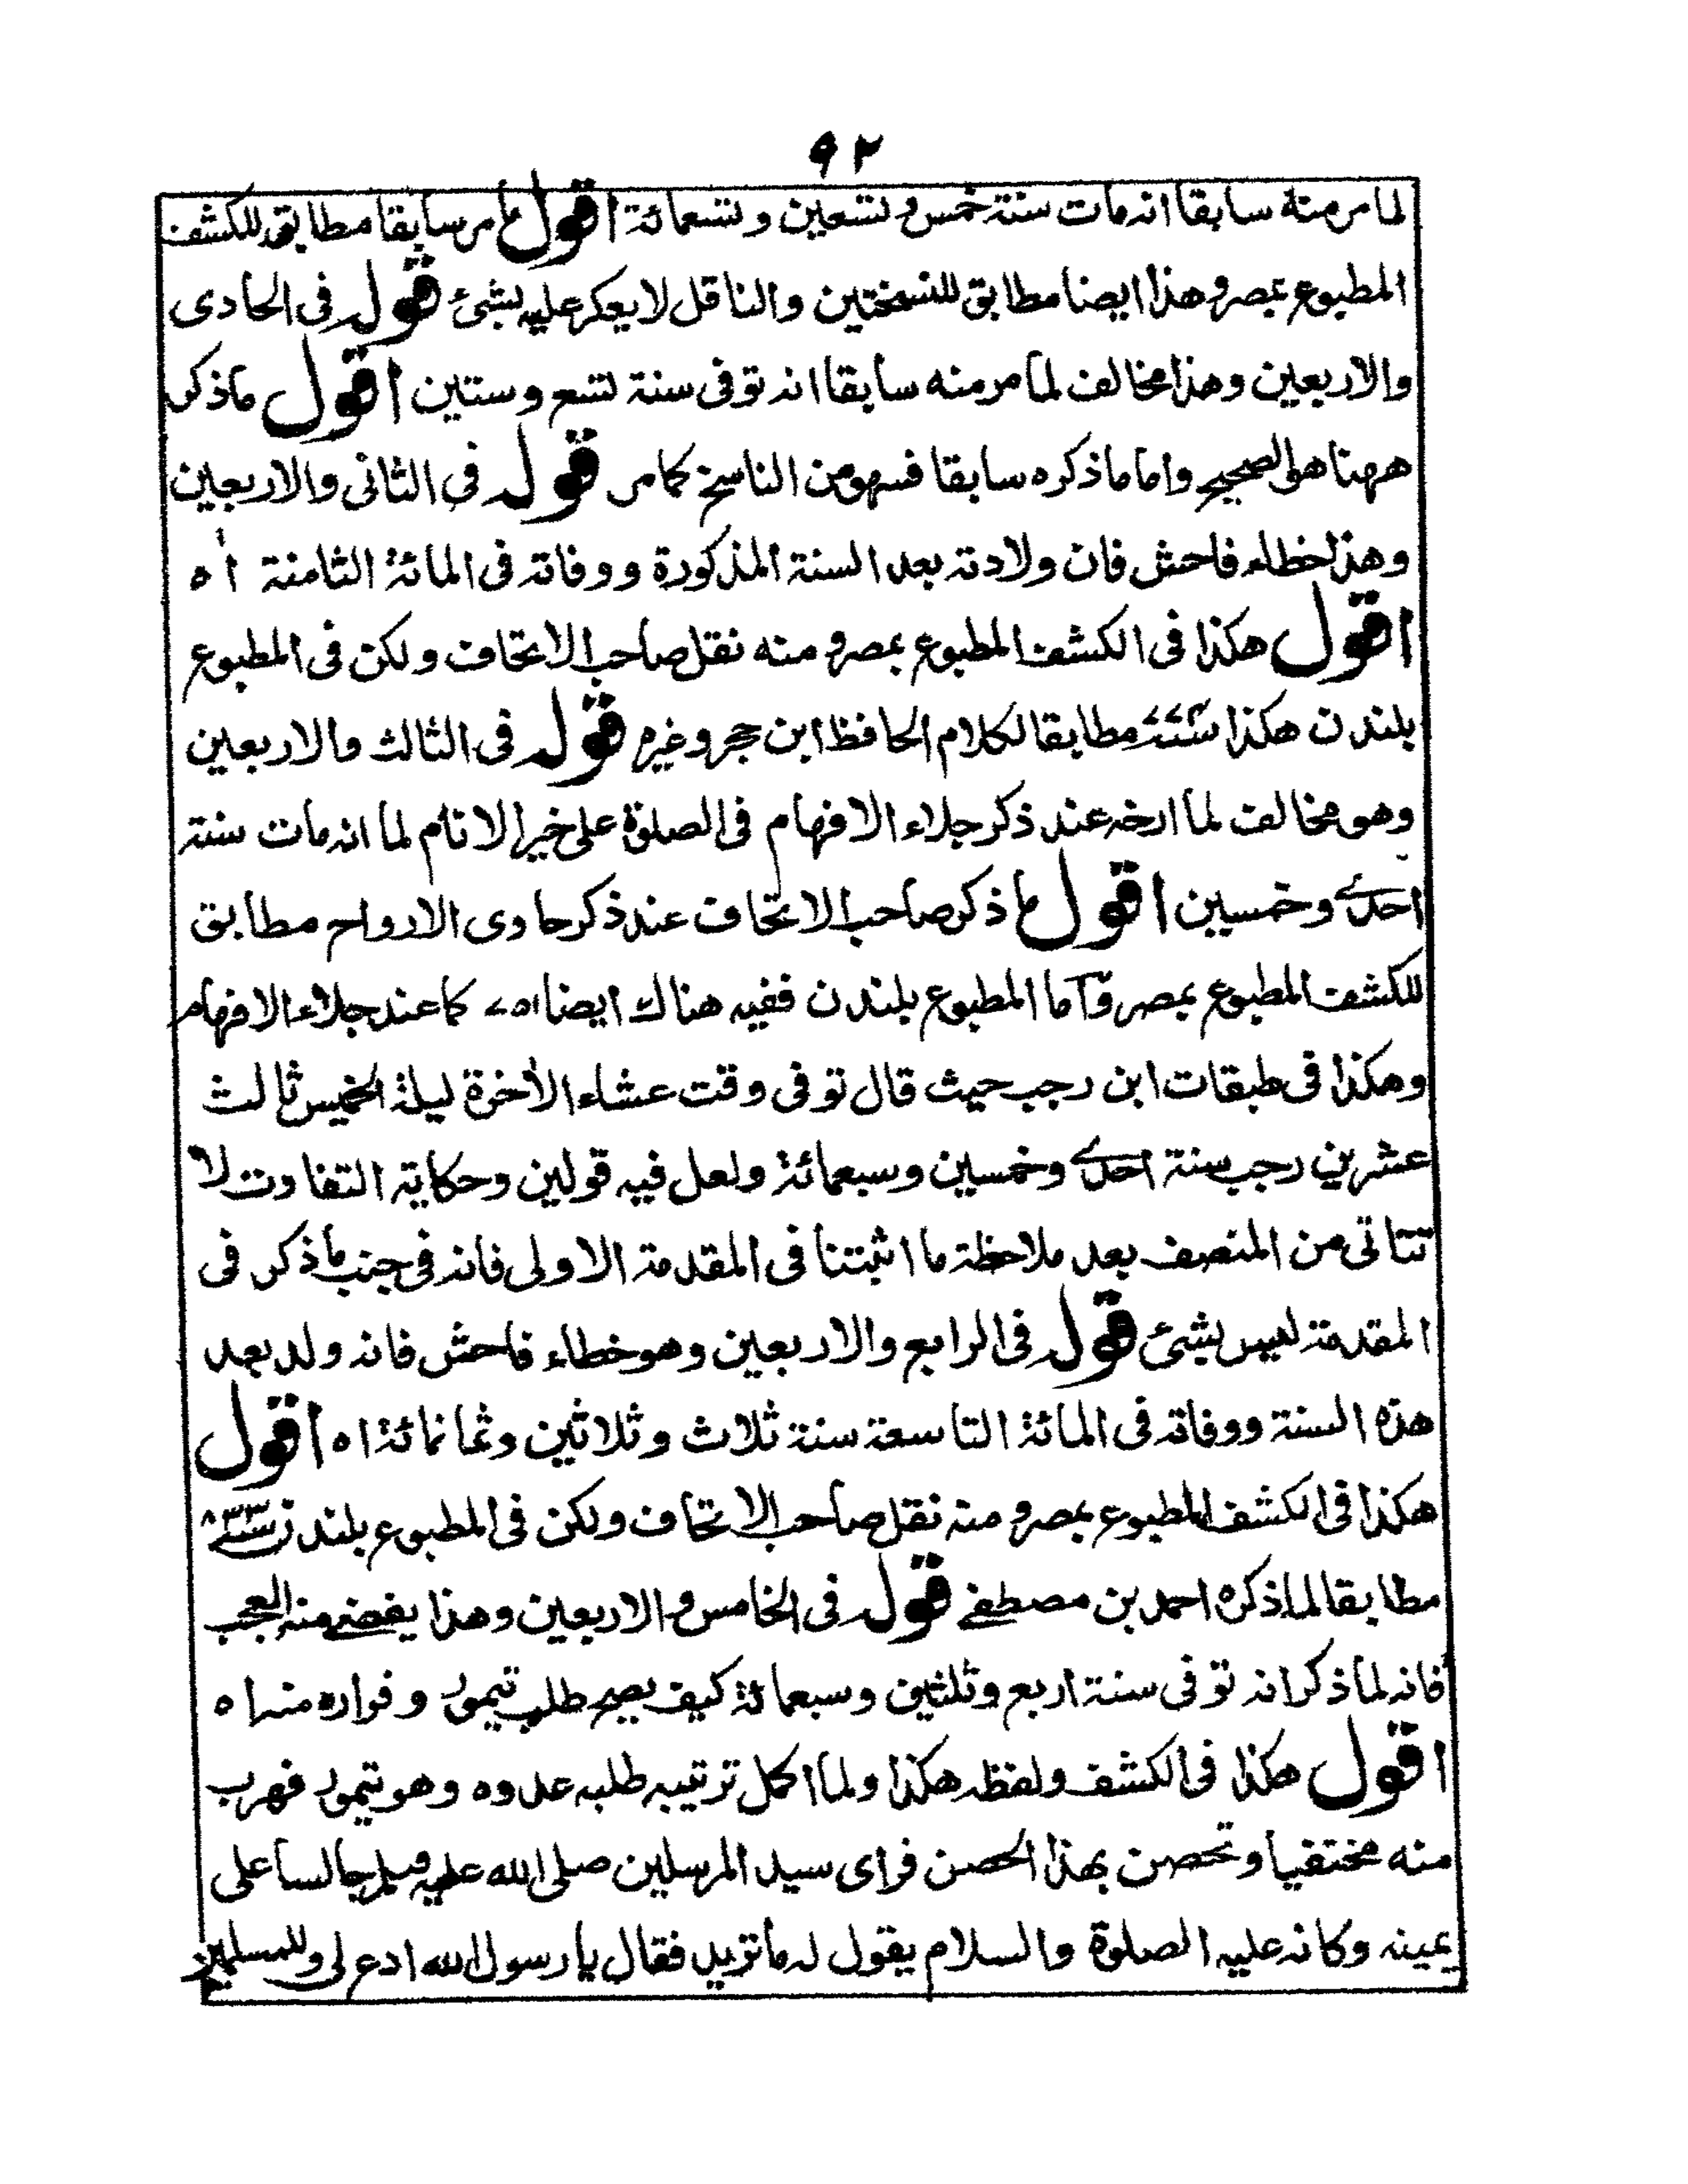 ٩٢
لما مر منه سابقا انه مات سنة خمس و تسعين و تسعمائة اقول ما مر سابقا مطابق للكشف
المطبوع بمصر و هذا ايضا مطابق للنسختين والناقل لا يعكر عليه بشئ قوله فى الحادى
والاربعين وهذا مخالف لما مر منه سابقا انه توفى سنة تسع وستين اقول ما ذكره
ههنا هو الصحيح واما ما ذكره سابقا فسهو من الناسخ كما مر قوله فى الثانى والاربعين
وهذا خطاء فاحش فان ولادته بعد السنة المذكورة ووفاته فى المائة الثامنة اه
اقول هكذا فى الكشف المطبوع بمصر و منه نقل صاحب الاتحاف ولكن فى المطبوع
بلندن هكذا مطابقا لكلام الحافظ ابن حجر وغيره قوله فى الثالث والاربعين
وهو مخالف لما ارخه عند ذكر جلاء الافهام فى الصلوة على خير الانام لما انه مات سنة
احدى وخمسين اقول ما ذكر صاحب الاتحاف عند ذكر حاوى الارواح مطابق
للكشف المطبوع بمصر وآما المطبوع بلندن ففيه هناك ايضا ٧٥١ كما عند جلاء الافهام
وهكذا فى طبقات ابن رجب حيث قال توفى وقت عشاء الأخرة ليلة الخميس ثالث
عشرين رجب سنة احدى وخمسين وسبعمائة ولعل فيه قولين وحكاية التفاوت لا
تتاتى من المنصف بعد ملاحظة ما اثبتنا فى المقدمة الاولى فانه فى جنب ما ذكر فى
المقدمة ليس بشئ قوله فى الرابع والاربعين وهو خطاء فاحش فانه ولد بعد
هذه السنة ووفاته فى المائة التاسعة سنة ثلاث وثلاثين وثمانمائة اه اقول
هكذا فى الكشف المطبوع بمصر و منه نقل صاحب الاتحاف ولكن فى المطبوع بلندن ٨٣٣
مطابقا لما ذكره احمد بن مصطفى قوله فى الخامس والاربعين وهذا يفضى منه العجب
فانه لما ذكر انه توفى سنة اربع وثلثين وسبعمائة كيف يصح طلب تيمور وفراره منه اه
اقول هكذا فى الكشف ولفظه هكذا ولما اكمل ترتيبه طلبه عدوه وهو تيمور فهرب
منه مختفيا وتحصن بهذا الحصن فراى سيد المرسلين صلى الله عليه وسلم جالسا على
يمينه وكانه عليه الصلوة والسلام يقول له ما تريد فقال يا رسول الله ادع لى وللمسلمين